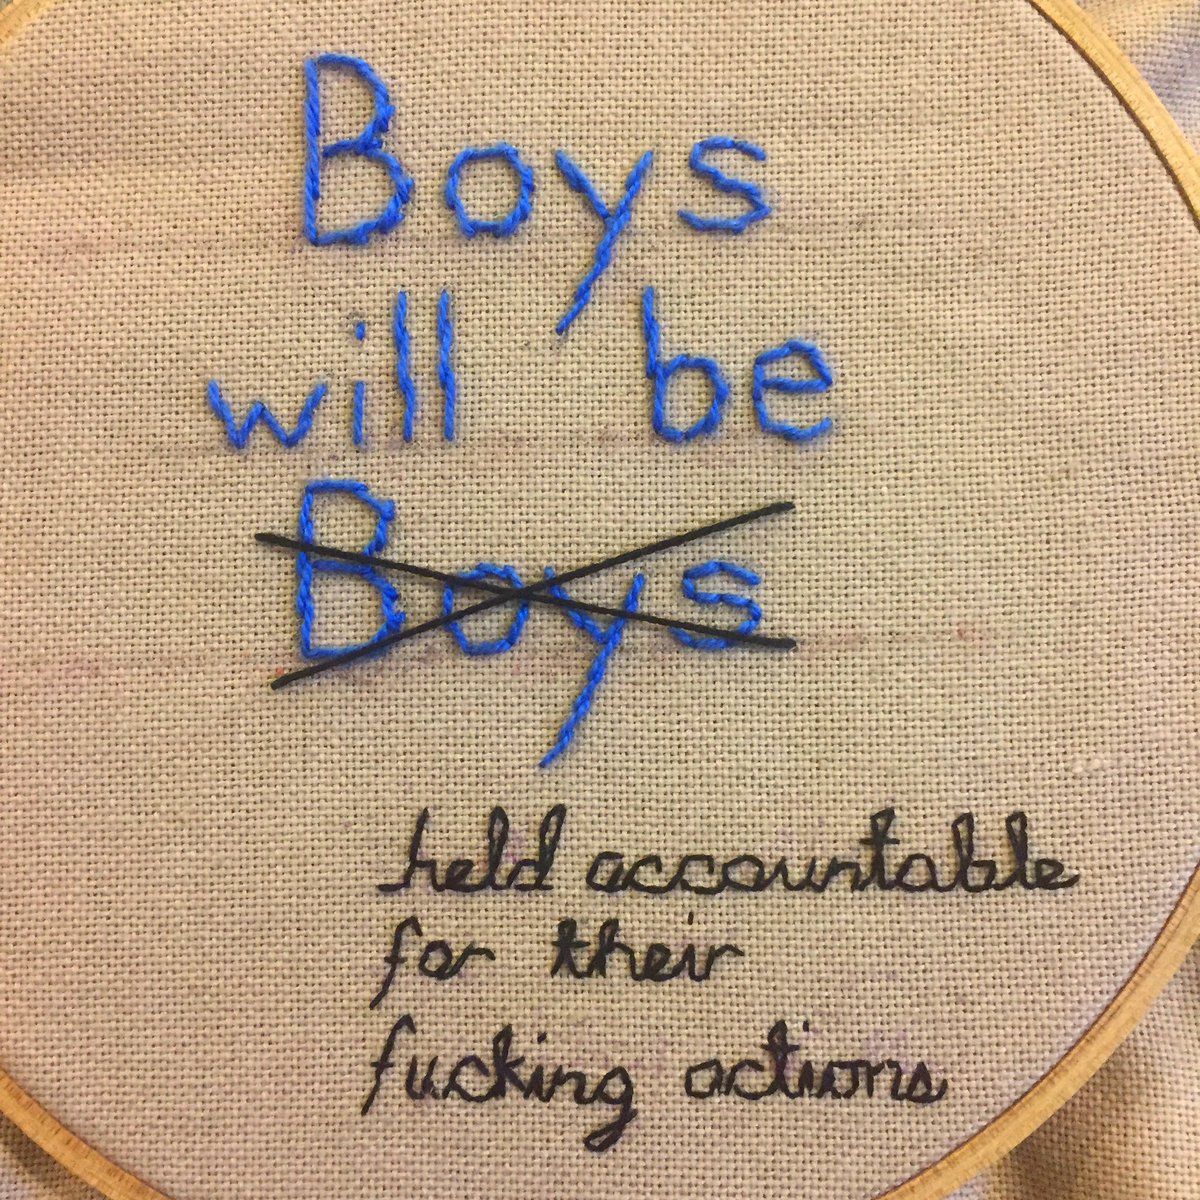 Boys
will be
Boys
held accountable
for their
fucking actions